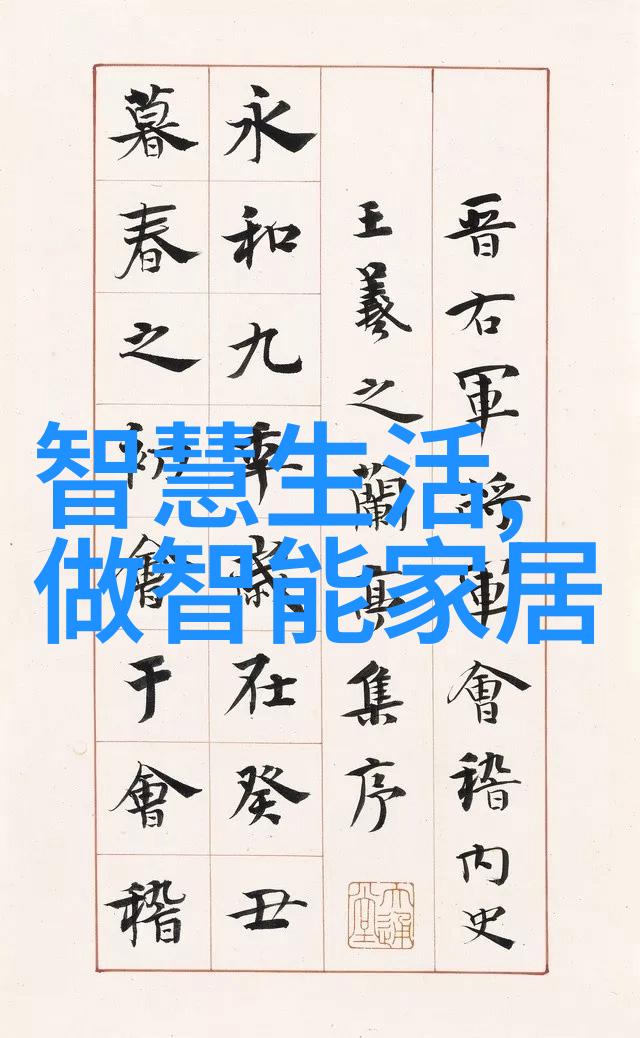 晋右軍將軍會稽内史
王羲之蘭亭集序
永和九年歲在癸丑
暮春之初會于會稽
智慧生活,
做智能家居